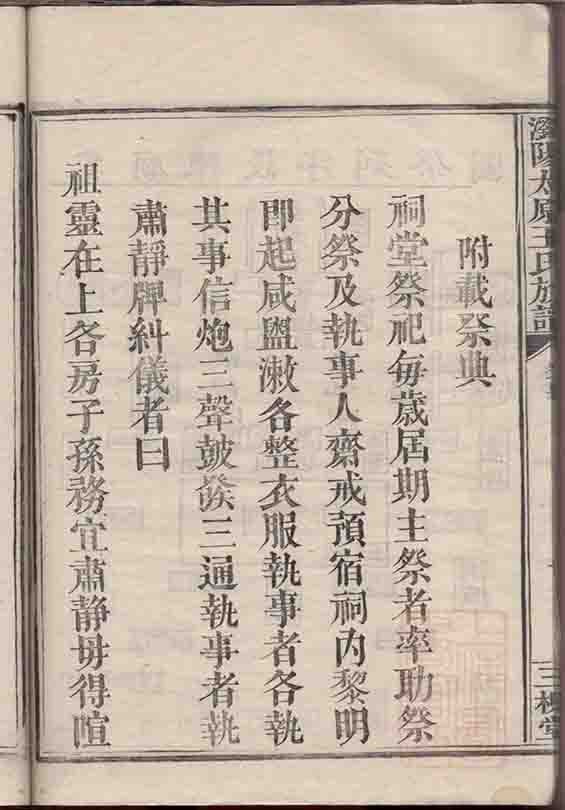 瀏陽太原王氏族譜
三槐堂
附載祭典
祠堂祭祀每歲屆期主祭者率助祭
分祭及執事人齋戒預宿祠內黎明
即起咸盥漱各整衣服執事者各執
其事信炮三聲鼓發三通執事者執
肅靜牌糾儀者曰
祖靈在上各房子孫務宜肅靜毋得喧